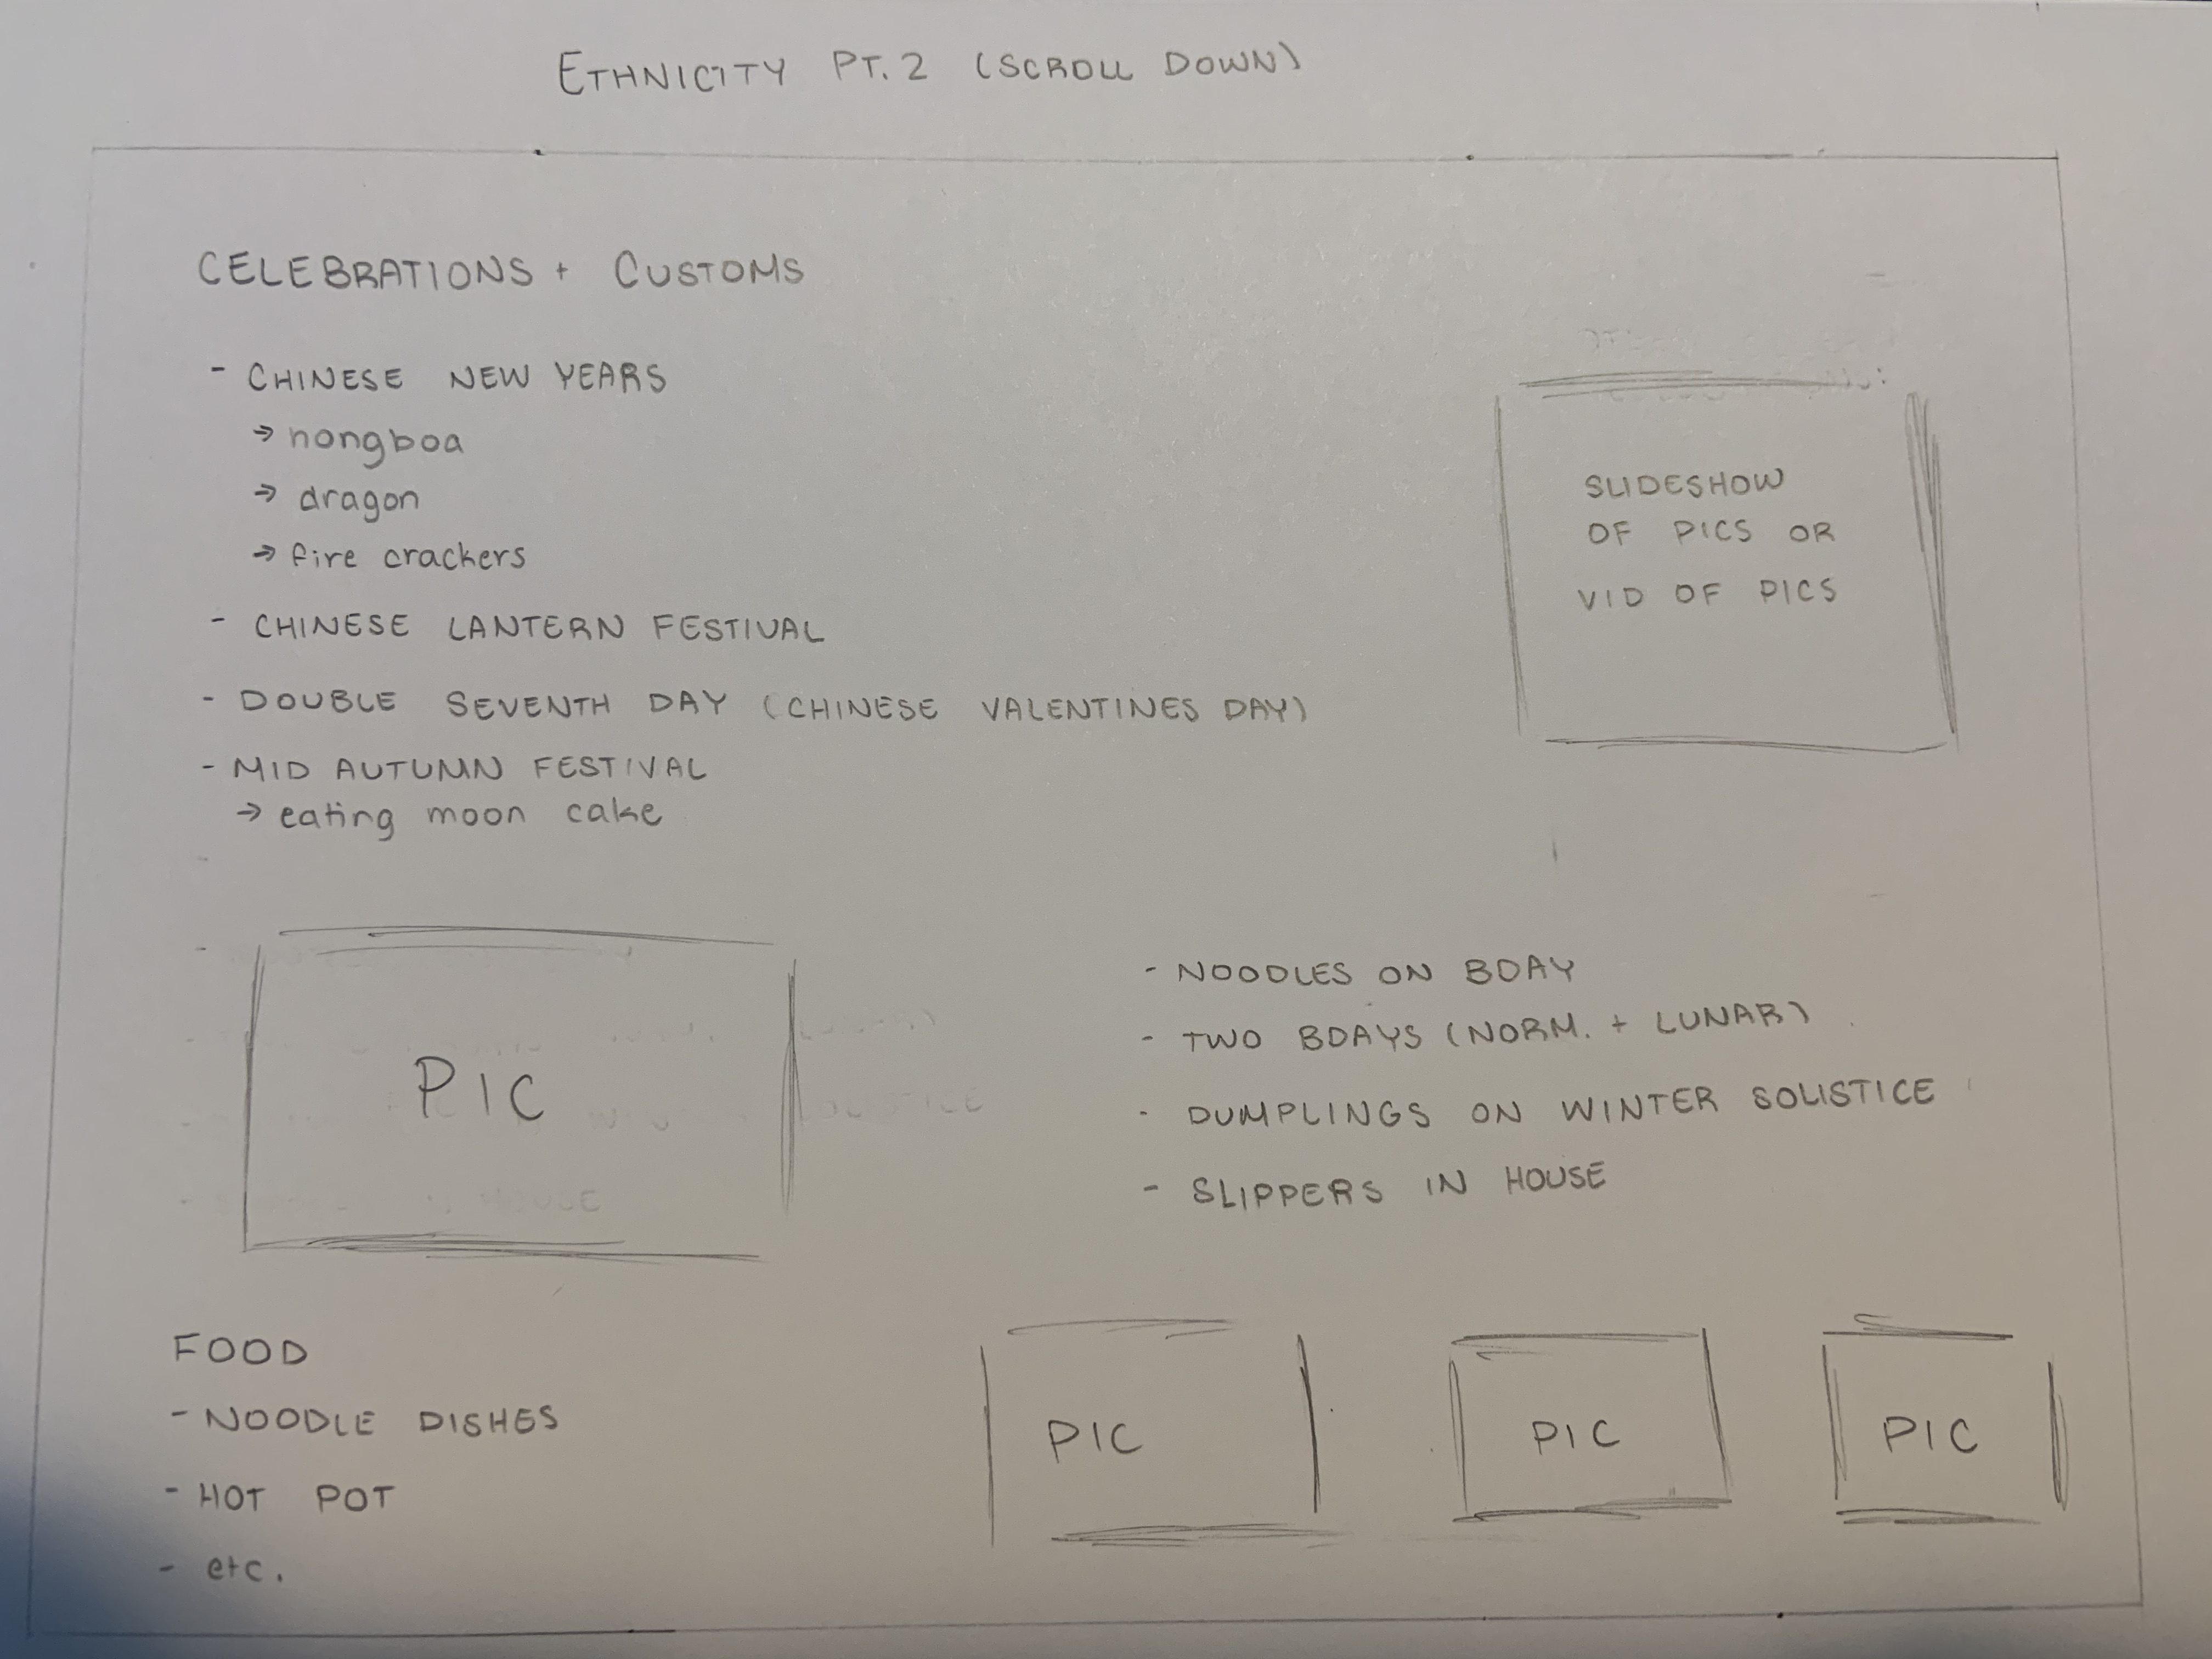 ETHNICITY PT.2 (SCROLL DOWN)
CELEBRATIONS + CUSTOMS
- CHINESE NEW YEARS
→ hongboa
→ dragon
→ fire crackers
- CHINESE LANTERN FESTIVAL
- DOUBLE SEVENTH DAY (CHINESE VALENTINES DAY)
- MID AUTUMN FESTIVAL
→ eating moon cake
SLIDESHOW
OF PICS OR
VID OF PICS
PIC
- NOODLES ON BDAY
- TWO BDAYS (NORM. + LUNAR)
- DUMPLINGS ON WINTER SOLISTICE
- SLIPPERS IN HOUSE
FOOD
- NOODLE DISHES
- HOT POT
- etc.
PIC
PIC
PIC